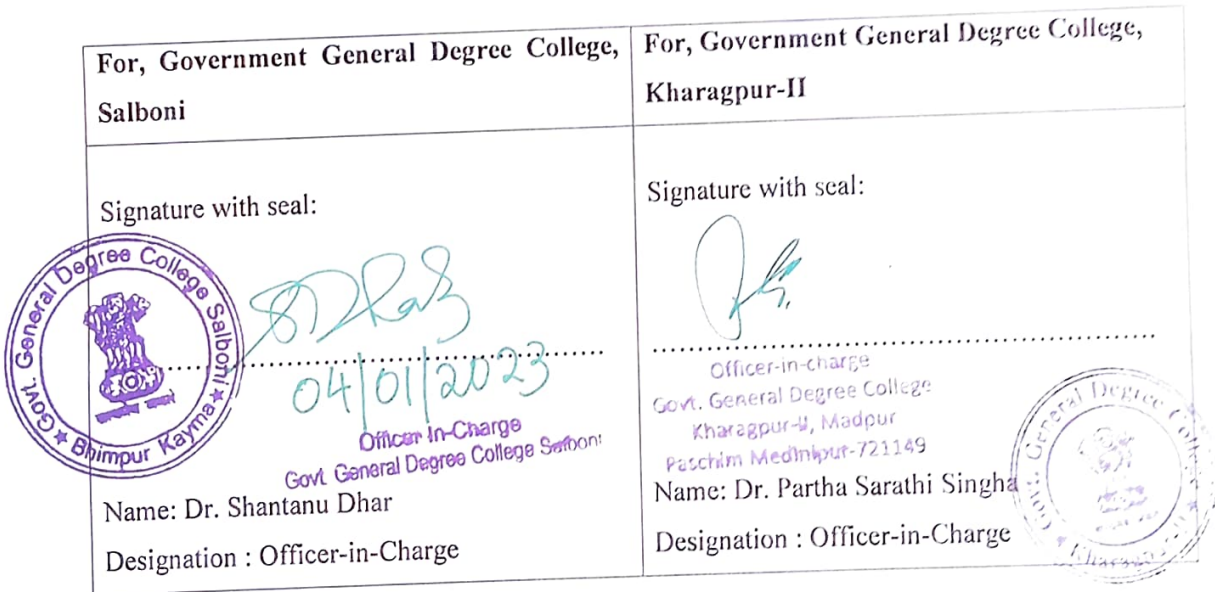 For, Government General Degree College,
Salboni
Signature with seal:
Govt. General Degree College Salboni
★ Bhimpur Kayma ★
04/01/2023
Officer In-Charge
Govt. General Degree College Salboni
Name: Dr. Shantanu Dhar
Designation : Officer-in-Charge
For, Government General Degree College,
Kharagpur-II
Signature with seal:
Officer-in-charge
Govt. General Degree College
Kharagpur-II, Madpur
Paschim Medinipur-721149
Name: Dr. Partha Sarathi Singha
Designation : Officer-in-Charge
Govt. General Degree College